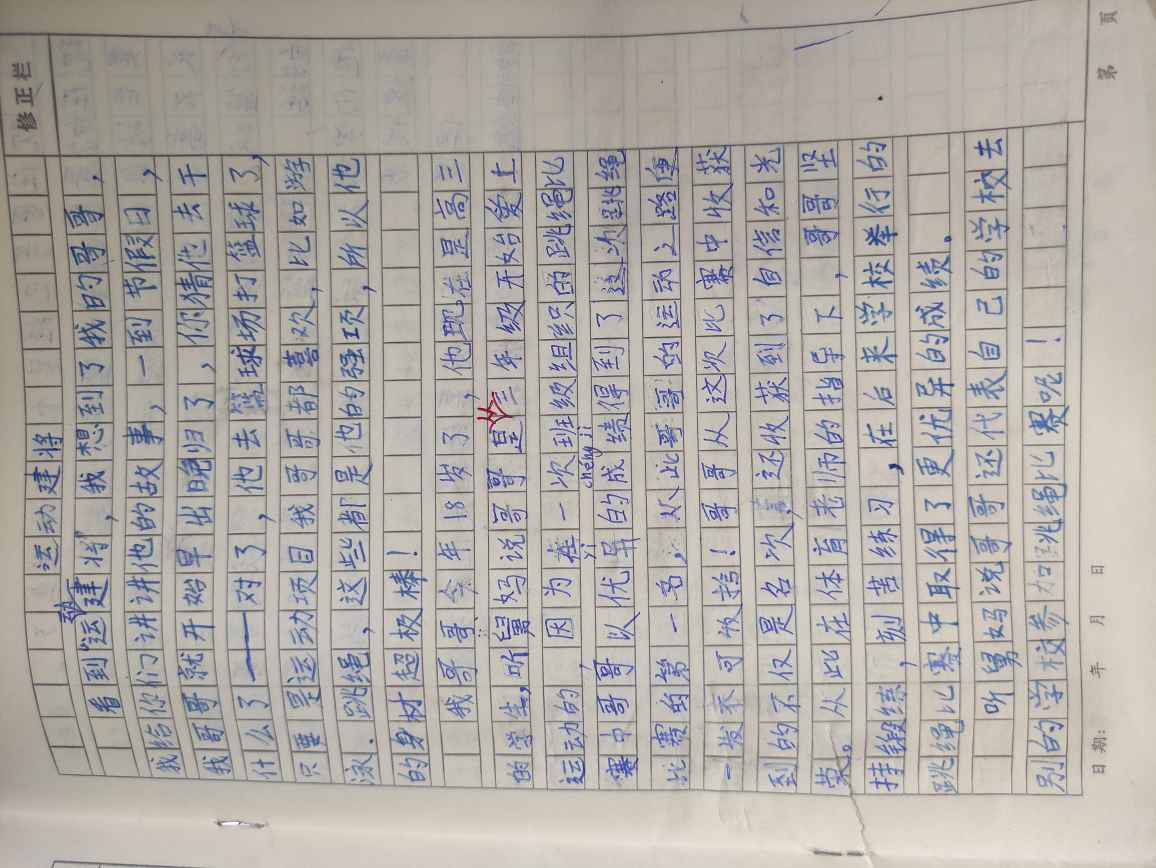 修正栏
运动建将
看到“运动建将”，我想到了我的哥哥.
我给你们讲讲他的故事，一到节假日，
我哥哥就开始早出晚归了，你猜他去干
什么了——对了，他去篮球场打篮球了，
只要是运动项目我哥哥都喜欢，比如游
泳.跳绳，这些都是他的强项，所以他
的身材超极棒！
我哥哥今年18岁了，他现在是高三
的学生，听舅妈说哥哥是从三年级开始爱上
运动的 因为在一次班级组织的跳绳比
yì chéng jì
赛中哥哥以优异的成绩得到了这次跳绳
比赛的第一名，从此哥哥的运动之路便
一发不可收拾！哥哥从这次比赛中收获
到的不仅是名次，还收获到了自信和光
荣。从此在体育老师的指导下，哥哥坚
持锻练，刻苦练习，在后来学校举行的
跳绳比赛中取得了更优异的成绩。
听舅妈说哥哥还代表自己的学校去
别的学校参加跳绳比赛呢！
日期： 年 月 日 第 页